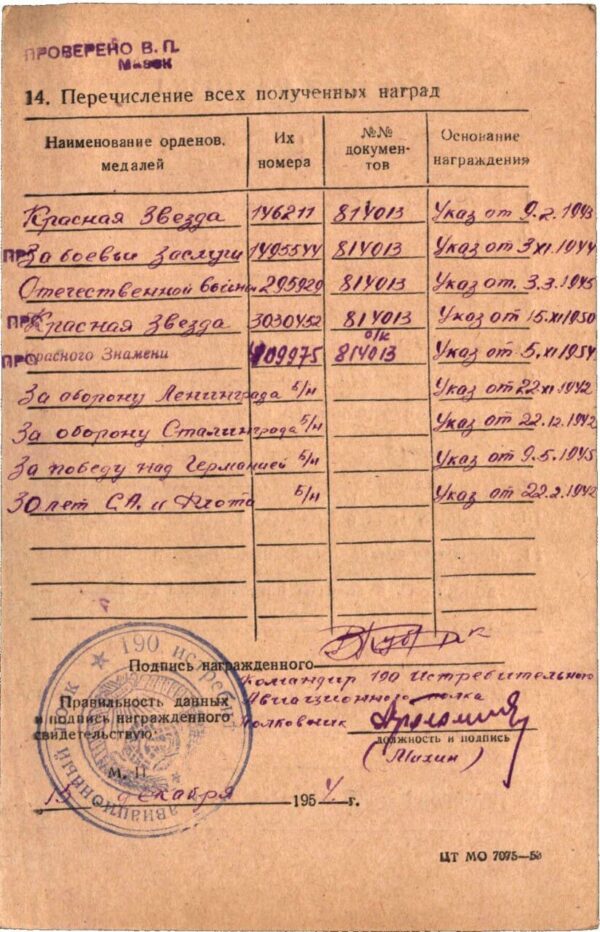 ПРОВЕРЕНО В. П.
14. Перечисление всех полученных наград
Наименование орденов, медалей
Их номера
№№ докумен-тов
Основание награждения
Красная Звезда 146211 814013 Указ от 9.2.1943
За боевые Заслуги 1495544 814013 Указ от 3 XI.1944
Отечественной войны 295929 814013 Указ от. 3.3.1945
Красная Звезда 3030452 814013 Указ от 15.XI 1950
Красного Знамени 409975 814013 Указ от 5.XI 1954
За оборону Ленинграда б/н Указ от 22 XII.1942
За оборону Сталинграда б/н Указ от 22.12.1942
За победу над Германией б/н Указ от 9.5.1945
30 лет С.А. и Флота б/н Указ от 22.2.1948
Подпись награжденного
Командир 190 Истребительного
Авиационного полка
Полковник
Правильность данных
и подпись награжденного
свидетельствую:
должность и подпись
(Михин)
М. П.
15 декабря 1954 г.
190. истреб
авиационный полк
ЦТ МО 7075—53